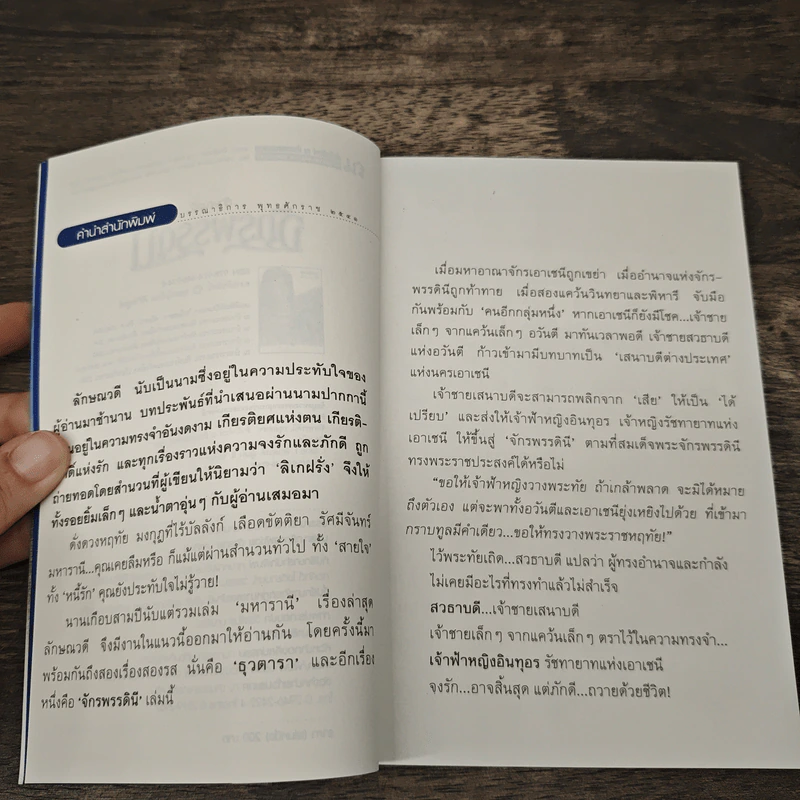 คำนำสำนักพิมพ์
บรรณาธิการ พุทธศักราช ๒๕๔๑
ลักษณวดี นับเป็นนามซึ่งอยู่ในความประทับใจของ
ผู้อ่านมาช้านาน บทประพันธ์ที่นำเสนอผ่านนามปากกานี้
นอยู่ในความทรงจำอันงดงาม เกียรติยศแห่งตน เกียรติ-
ดีแห่งรัก และทุกเรื่องราวแห่งความจงรักและภักดี ถูก
ถ่ายทอดโดยสำนวนที่ผู้เขียนให้นิยามว่า ‘ลิเกฝรั่ง’ จึงให้
ทั้งรอยยิ้มเล็กๆ และน้ำตาอุ่นๆ กับผู้อ่านเสมอมา
ดั่งดวงหฤทัย มงกุฎที่ไร้บัลลังก์ เลือดขัตติยา รัศมีจันทร์
มหารานี...คุณเคยลืมหรือ ก็แม้แต่ผ่านสำนวนทั่วไป ทั้ง ‘สายใจ’
ทั้ง ‘หนี้รัก’ คุณยังประทับใจไม่รู้วาย!
นานเกือบสามปีนับแต่รวมเล่ม ‘มหารานี’ เรื่องล่าสุด
ลักษณวดี จึงมีงานในแนวนี้ออกมาให้อ่านกัน โดยครั้งนี้มา
พร้อมกันถึงสองเรื่องสองรส นั่นคือ ‘ธุวตารา’ และอีกเรื่อง
หนึ่งคือ ‘จักรพรรดินี’ เล่มนี้
เมื่อมหาอาณาจักรเอาเชนีถูกเขย่า เมื่ออำนาจแห่งจักร-
พรรดินีถูกท้าทาย เมื่อสองแคว้นวินทยาและพิหารี จับมือ
กันพร้อมกับ ‘คนอีกกลุ่มหนึ่ง’ หากเอาเชนีก็ยังมีโชค...เจ้าชาย
เล็กๆ จากแคว้นเล็กๆ อวันตี มาทันเวลาพอดี เจ้าชายสวธาบดี
แห่งอวันตี ก้าวเข้ามามีบทบาทเป็น ‘เสนาบดีต่างประเทศ’
แห่งนครเอาเชนี
เจ้าชายเสนาบดีจะสามารถพลิกจาก ‘เสีย’ ให้เป็น ‘ได้
เปรียบ’ และส่งให้เจ้าฟ้าหญิงอินทุอร เจ้าหญิงรัชทายาทแห่ง
เอาเชนี ให้ขึ้นสู่ ‘จักรพรรดินี’ ตามที่สมเด็จพระจักรพรรดินี
ทรงพระราชประสงค์ได้หรือไม่
“ขอให้เจ้าฟ้าหญิงวางพระทัย ถ้าเกล้าพลาด จะมิได้หมาย
ถึงตัวเอง แต่จะพาทั้งอวันตีและเอาเชนียุ่งเหยิงไปด้วย ที่เข้ามา
กราบทูลมีคำเดียว...ขอให้ทรงวางพระราชหฤทัย!”
ไว้พระทัยเถิด...สวธาบดี แปลว่า ผู้ทรงอำนาจและกำลัง
ไม่เคยมีอะไรที่ทรงทำแล้วไม่สำเร็จ
สวธาบดี...เจ้าชายเสนาบดี
เจ้าชายเล็กๆ จากแคว้นเล็กๆ ตราไว้ในความทรงจำ...
เจ้าฟ้าหญิงอินทุอร รัชทายาทแห่งเอาเชนี
จงรัก...อาจสิ้นสุด แต่ภักดี...ถวายด้วยชีวิต!